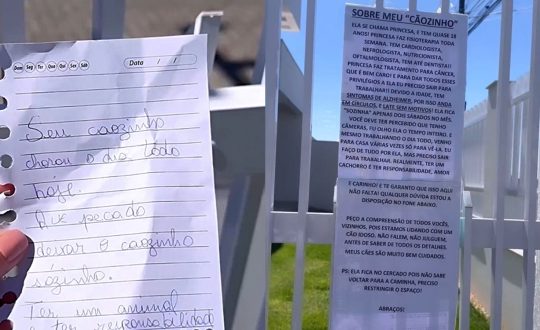 Dom Seg Ter Qua Qui Sex Sáb
Data / /
Seu caozinho
chorou o dia todo
hoje.
Que pecado
deixar o caozinho
sózinho.
Ter um animal
é ter responsabilidade
SOBRE MEU "CÃOZINHO"
ELA SE CHAMA PRINCESA, E TEM QUASE 18
ANOS! PRINCESA FAZ FISIOTERAPIA TODA
SEMANA. TEM CARDIOLOGISTA,
NEFROLOGISTA, NUTRICIONISTA,
OFTALMOLOGISTA, TEM ATÉ DENTISTA!!
PRINCESA FAZ TRATAMENTO PARA CÂNCER,
QUE É BEM CARO! E PARA DAR TODOS ESSES
PRIVILÉGIOS A ELA EU PRECISO SAIR PARA
TRABALHAR!! DEVIDO A IDADE, TEM
SINTOMAS DE ALZHEIMER, POR ISSO ANDA
EM CÍRCULOS, E LATE SEM MOTIVOS! ELA FICA
"SOZINHA" APENAS DOIS SÁBADOS NO MÊS.
VOCÊ DEVE TER PERCEBIDO QUE TENHO
CÂMERAS, FU OLHO ELA O TEMPO INTEIRO. E
MESMO TRABALHANDO O DIA TODO, VENHO
PARA CASA VÁRIAS VEZES SÓ PARA VÊ-LA. EU
FAÇO DE TUDO POR ELA, MAS PRECISO SAIR
PARA TRABALHAR. REALMENTE, TER UM
CACHORRO É TER RESPONSABILIDADE, AMOR
E CARINHO! E TE GARANTO QUE ISSO AQUI
NÃO FALTA! QUALQUER DÚVIDA ESTOU A
DISPOSIÇÃO NO FONE ABAIXO.
PEÇO A COMPREENSÃO DE TODOS VOCÊS,
VIZINHOS, POIS ESTAMOS LIDANDO COM UM
CÃO IDOSO. NÃO FALEM, NÃO JULGUEM,
ANTES DE SABER DE TODOS OS DETALHES.
MEUS CÃES SÃO MUITO BEM CUIDADOS.
PS: ELA FICA NO CERCADO POIS NÃO SABE
VOLTAR PARA A CAMINHA, PRECISO
RESTRINGIR O ESPAÇO!
ABRAÇOS!